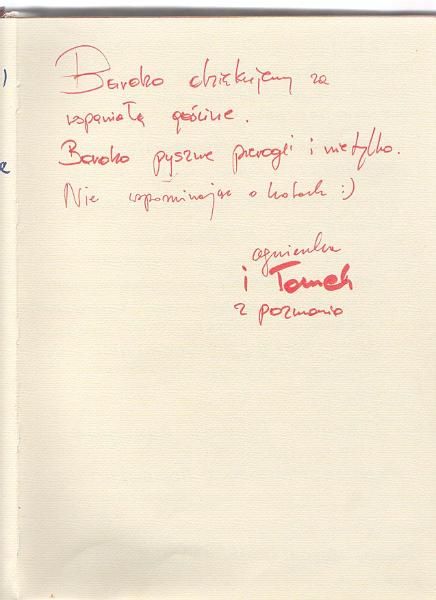 Bardzo dziękujemy za
wspaniałą gościnę.
Bardzo pyszne pierogi i nie tylko.
Nie wspominając o kotach :)
agnieszka
i Tomek
z poznania